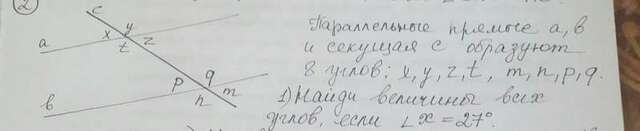 2
c
a
x y
t z
p q
b
n m
Параллельные прямые a, b
и секущая c образуют
8 углов: x, y, z, t, m, n, p, q.
1) Найди величины всех
углов, если ∠x = 27°.